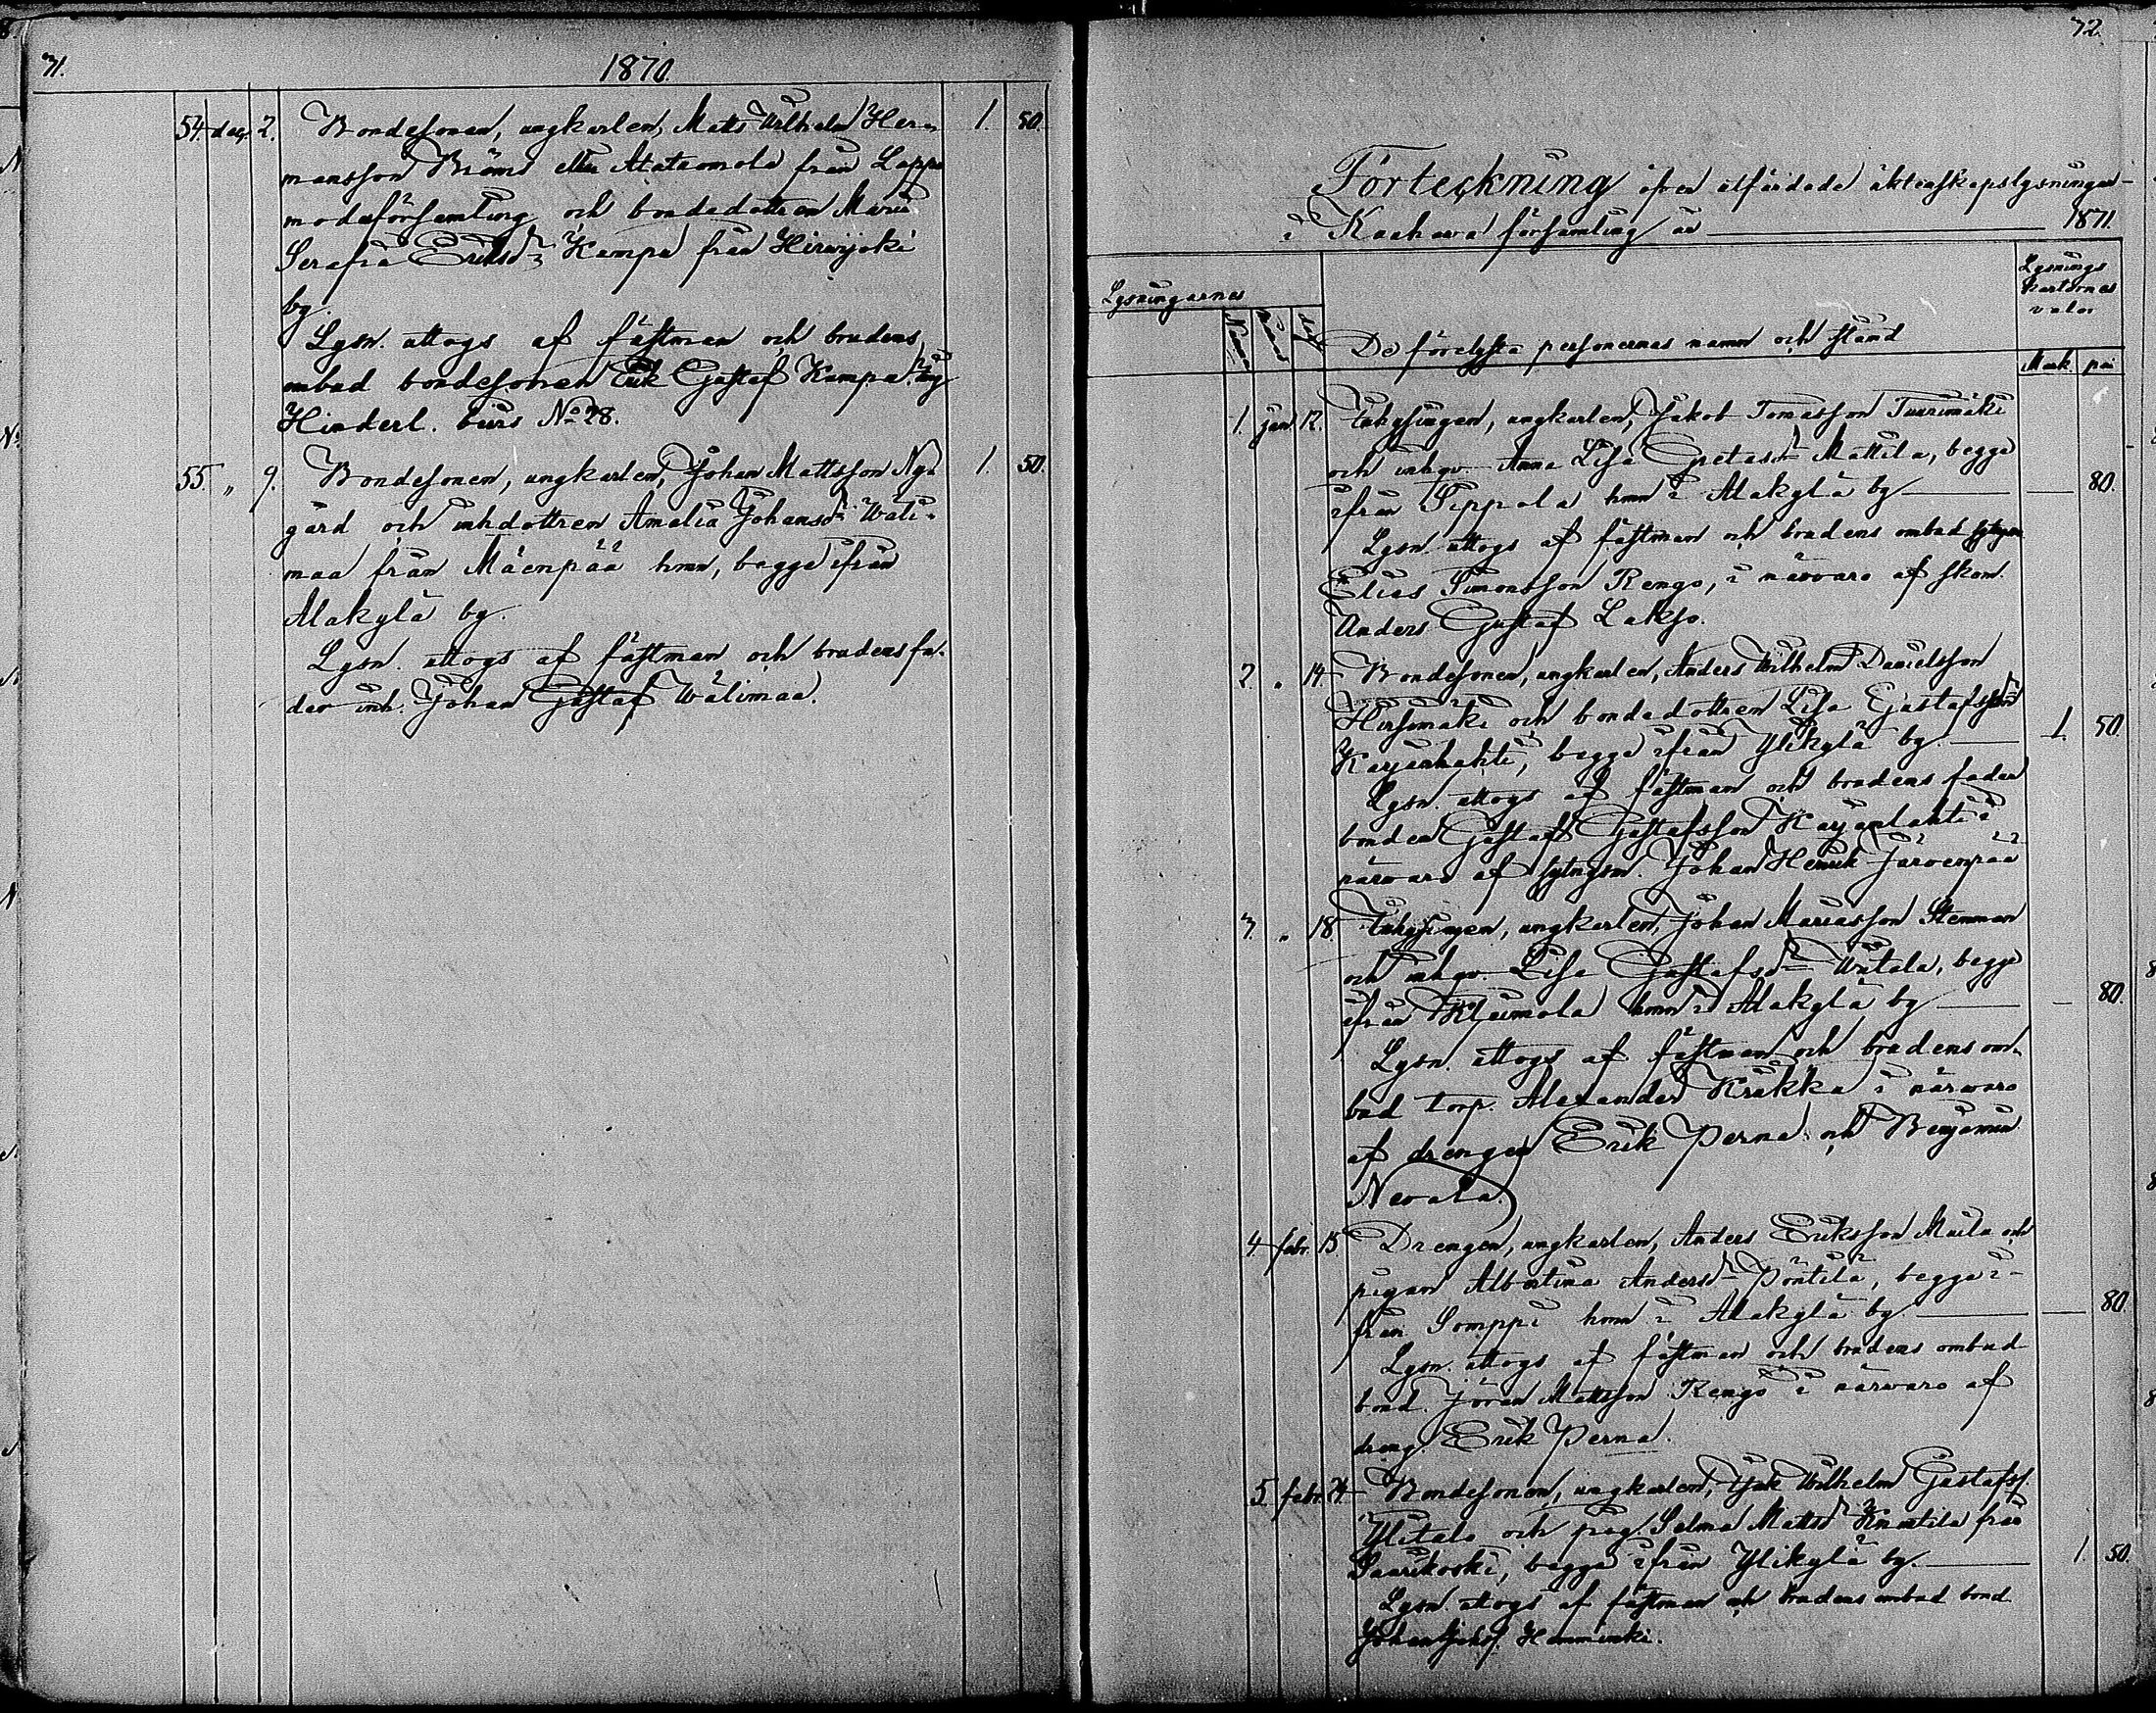 71.
1870.
54. dec. 2. Bondesonen, ungkarlen, Matts Wilhelm Her- 1. 50.
mansson Bröms eller Alataomola från Lappo
moderförsamling och bondedottren Maria
Serafia Eriksdr Kampa från Hirvijoki
by.
Lysn. uttogs af fästman och brudens
ombud bondesonen Erik Gustaf Kampa.
Hinderl. bevis No 28.
55. " 9. Bondesonen, ungkarlen, Johan Mattsson Ny- 1. 50.
gård och inhdottren Amalia Johansdr Wäli-
maa från Mäenpää hmn, begge ifrån
Alakylä by.
Lysn. uttogs af fästman och brudens fa-
der inh. Johan Gustaf Wälimaa.
72.
Förteckning öfver utfärdade äktenskapslysningar
i Kauhava församling år 1871.
Lysningarnes
De förelysta personernas namn och stånd
Lysnings
kartornes
valör
Mark. pi
1. jan. 12. Inhysingen, ungkarlen, Jakob Tomasson Tuurimäki
och inhqv. Anna Lisa Gretasdr Mattila, begge
ifrån Sippola hmn i Alakylä by — 80.
Lysn. uttogs af fästman och brudens ombud
Elias Simonsson Rengo, i närvaro af skom.
Anders Gustaf Lakso.
2. " 14. Bondesonen, ungkarlen, Anders Wilhelm Danielsson
Hirsimäki och bondedottren Lisa Gustafsdr
Karjanlahti, begge ifrån Ylikylä by. — 1. 50.
Lysn. uttogs af fästman och brudens fader
bonden Gustaf Gustafsson Karjanlahti i
närvaro af sytngsm. Johan Henrik Järvenpää
3. " 18. Inhysingen, ungkarlen, Johan Mariasson Stenman
och inhqv. Lisa Gustafsdr Witala, begge
ifrån Kleimola hmn i Alakylä by — 80.
Lysn. uttogs af fästman och brudens om-
bud torp. Alexander Kräkka i närvaro
af drengen Erik Perna och Benjamin
Nevala.
4. febr. 15 Drengen, ungkarlen, Anders Eriksson Muila och
pigan Albertina Andersdr Pöntilä, begge i-
från Somppi hmn i Alakylä by — 80.
Lysn. uttogs af fästman och brudens ombud
bond. Jöran Mattsson Rengo i närvaro af
dreng. Erik Perna.
5. febr. 24. Bondesonen, ungkarlen, Isak Wilhelm Gustafss.
Ylitalo och pig. Selma Mattsdr Knuutila från
Saarikoski, begge ifrån Ylikylä by. — 1. 50.
Lysn. uttogs af fästman och brudens ombud bond.
Johan Hemminki.